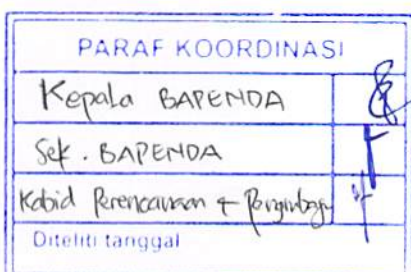 PARAF KOORDINASI
Kepala BAPENDA
Sek. BAPENDA
Kabid Perencanaan +
Diteliti tanggal